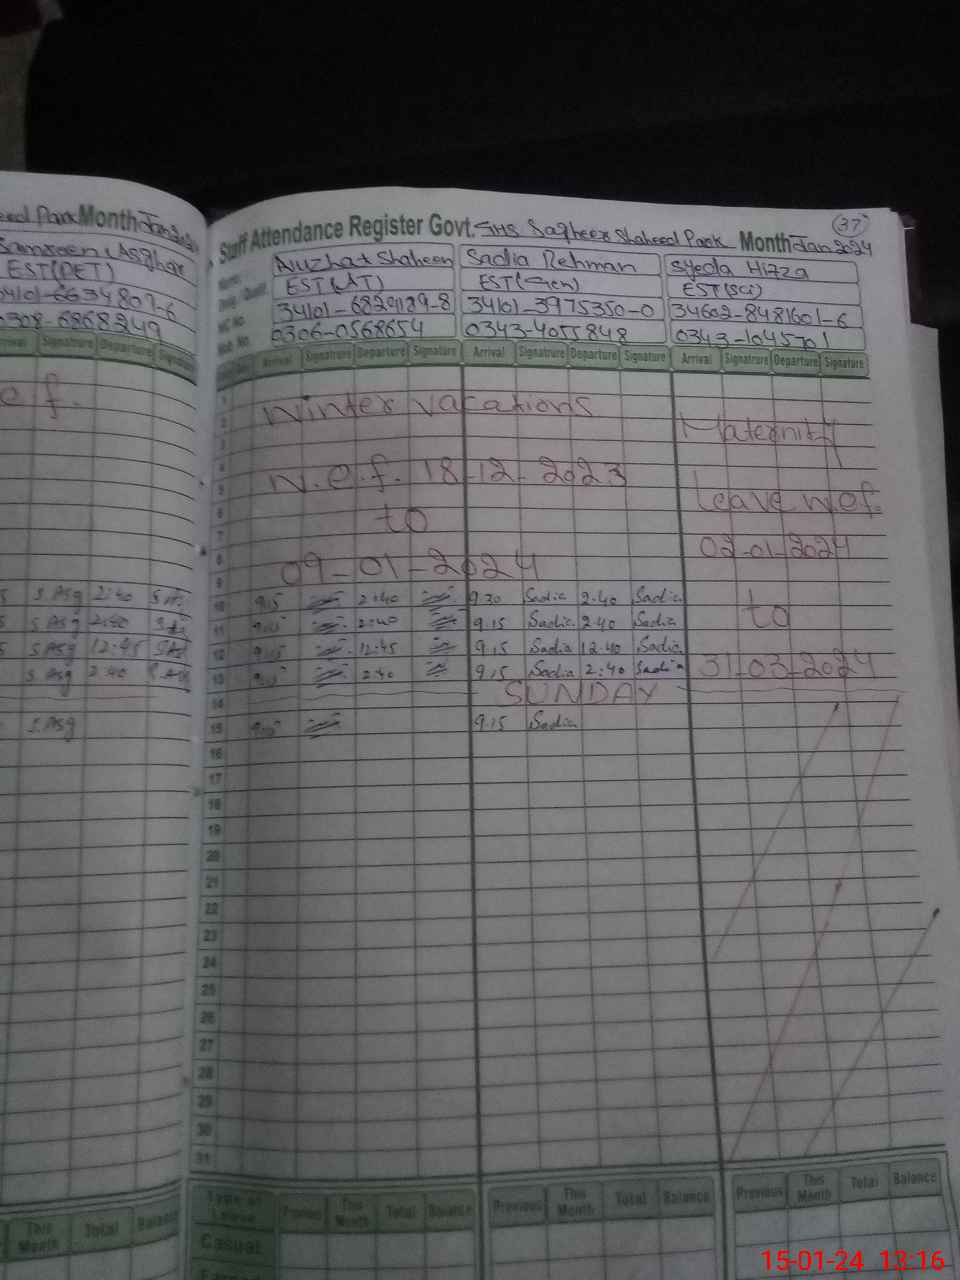 Park Month Jan
EST(DET)
0308-6868249
Signature Departure Signature
e f.
S. Asg 2:40
S. Asg 2:40
S. Asg 12:45
S. Asg 2:40
S. Asg
This Month Total Balance
37
Staff Attendance Register Govt. GHS Sagheer Shaheed Park Month Jan 2024
Nuzhat Shaheen Sadia Rehman Syeda Hifza
EST(AT) EST(Gen) EST(Sci)
34101-3975350-0 34602-8481601-6
0306-0568654 0343-4055848 0343-1045701
Arrival Signature Departure Signature Arrival Signature Departure Signature Arrival Signature Departure Signature
1
2 Winter vacations
3 Maternity
4
5 w.e.f. 18-12-2023
Leave w.e.f.
6 to
7
8 02-01-2024
9 09-01-2024
10 9:15 2:40 9:30 Sadia 2:40 Sadia
to
11 9:15 2:40 9:15 Sadia 2:40 Sadia
12 9:15 12:45 9:15 Sadia 12:40 Sadia
13 9:15 2:40 9:15 Sadia 2:40 Sadia
31-03-2024
14 SUNDAY
15 9:15 9:15 Sadia
16
17
18
19
20
21
22
23
24
25
26
27
28
29
30
31
Type of Leave Previous This Month Total Balance Previous This Month Total Balance Previous This Month Total Balance
Casual
15-01-24 13:16